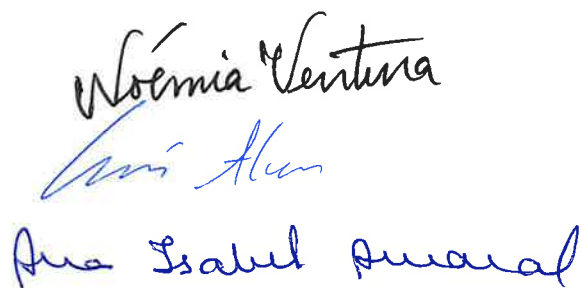 Noémia Ventura
Luís Alves
Ana Isabel Amaral